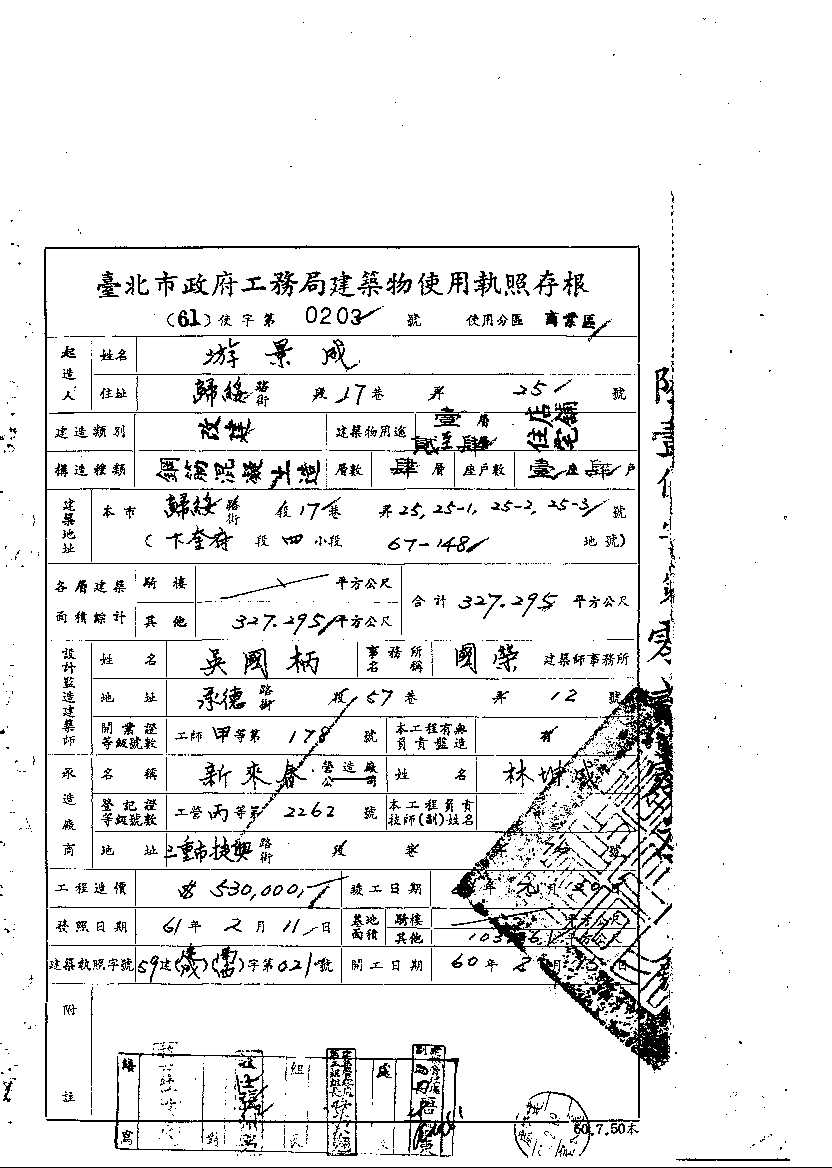 臺北市政府工務局建築物使用執照存根
(61)使字第 0203 號 使用分區 商業區
起造人 姓名 游景成
住址 歸綏 路街 段 17 巷 弄 25 號
建造類別 改建 建築物用途 壹層 店舖 貳至肆層 住宅
構造種類 鋼筋混凝土造 層數 肆層 座戶數 壹座肆戶
建築地址 本市 歸綏 路街 段 17 巷 弄 25, 25-1, 25-2, 25-3 號
(下奎府 段 四 小段 67-148 地號)
各層建築面積綜計 騎樓 平方公尺 合計 327.295 平方公尺
其他 327.295 平方公尺
設計監造建築師 姓名 吳國柄 事務所名稱 國榮 建築師事務所
地址 承德 路街 段 57 巷 弄 12 號
開業證等級號數 工師 甲 等第 178 號 本工程有無負責監造 有
承造廠商 名稱 新來春 營造廠公司 姓名 林坤成
登記證等級號數 工營 丙 等第 2262 號 本工程負責技師(副)姓名
地址 三重市捷興 路街 段 巷 號
工程造價 530,000 竣工日期 年 月 20 日
發照日期 61 年 2 月 11 日 基地面積 騎樓 平方公尺
其他 平方公尺
建築執照字號 59 建 字第 021 號 開工日期 60 年 8 月 日
附註
繕寫 對 組長 處
60.7.50本